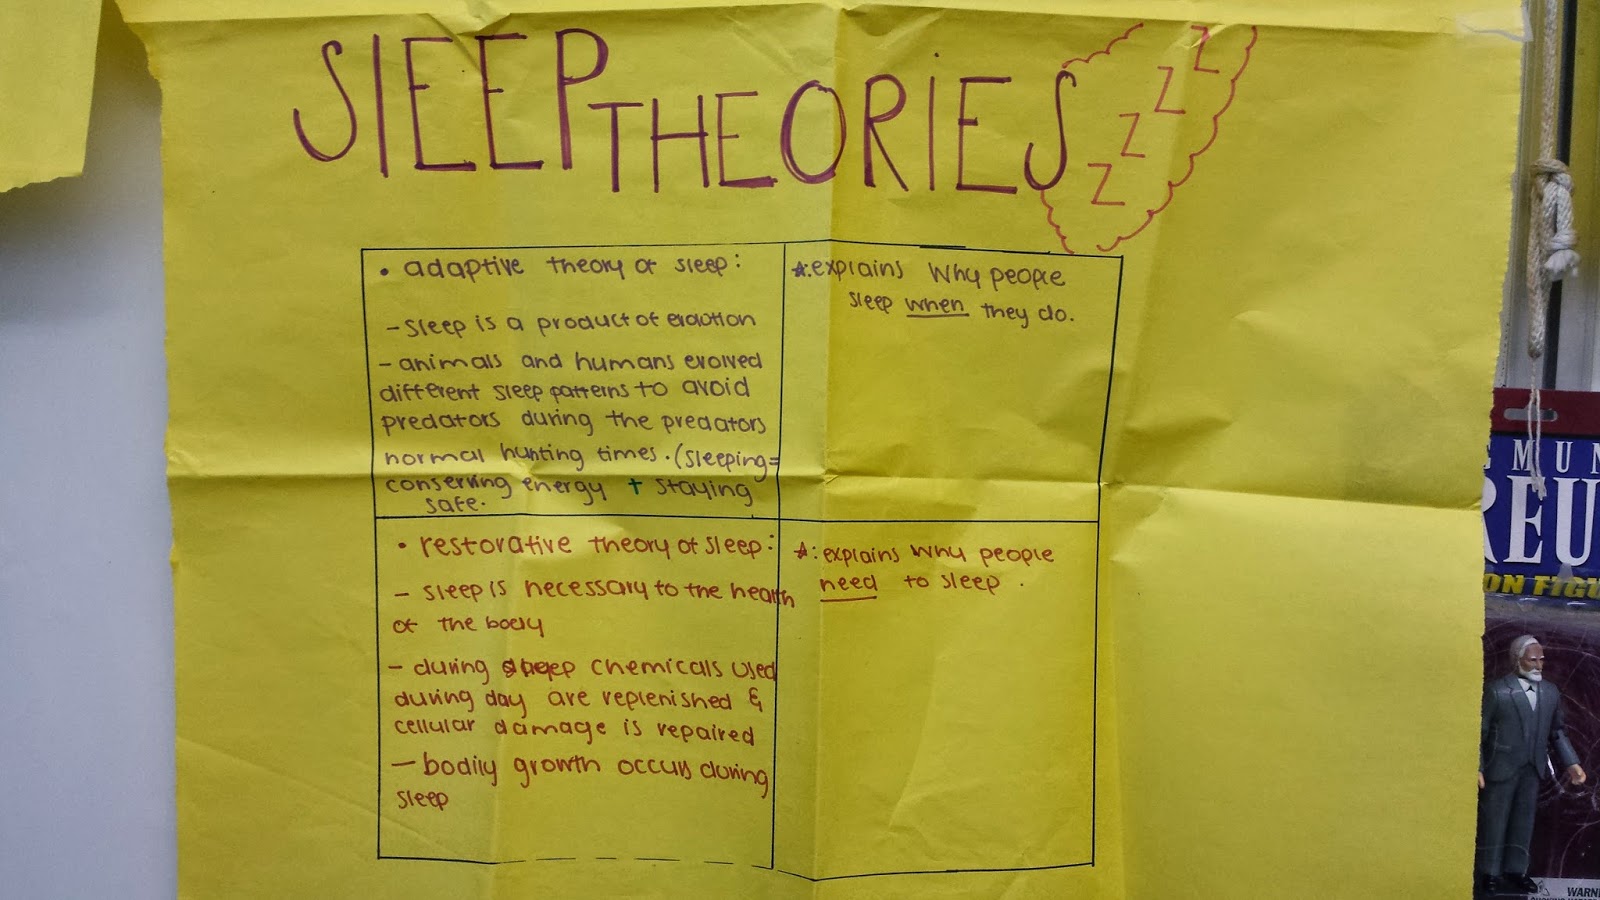 SlEEP THEORiES
Z
Z
Z
Z
• adaptive theory of sleep:
- sleep is a product of evolution
- animals and humans evolved
different sleep patterns to avoid
predators during the predators
normal hunting times. (sleeping=
conserving energy + staying
safe.
*: explains why people
sleep when they do.
• restorative theory of sleep:
- sleep is necessary to the health
of the body
- during sleep chemicals used
during day are replenished &
cellular damage is repaired
- bodily growth occurs during
sleep
*: explains why people
need to sleep.
MUN
REU
ON FIGU
WARN